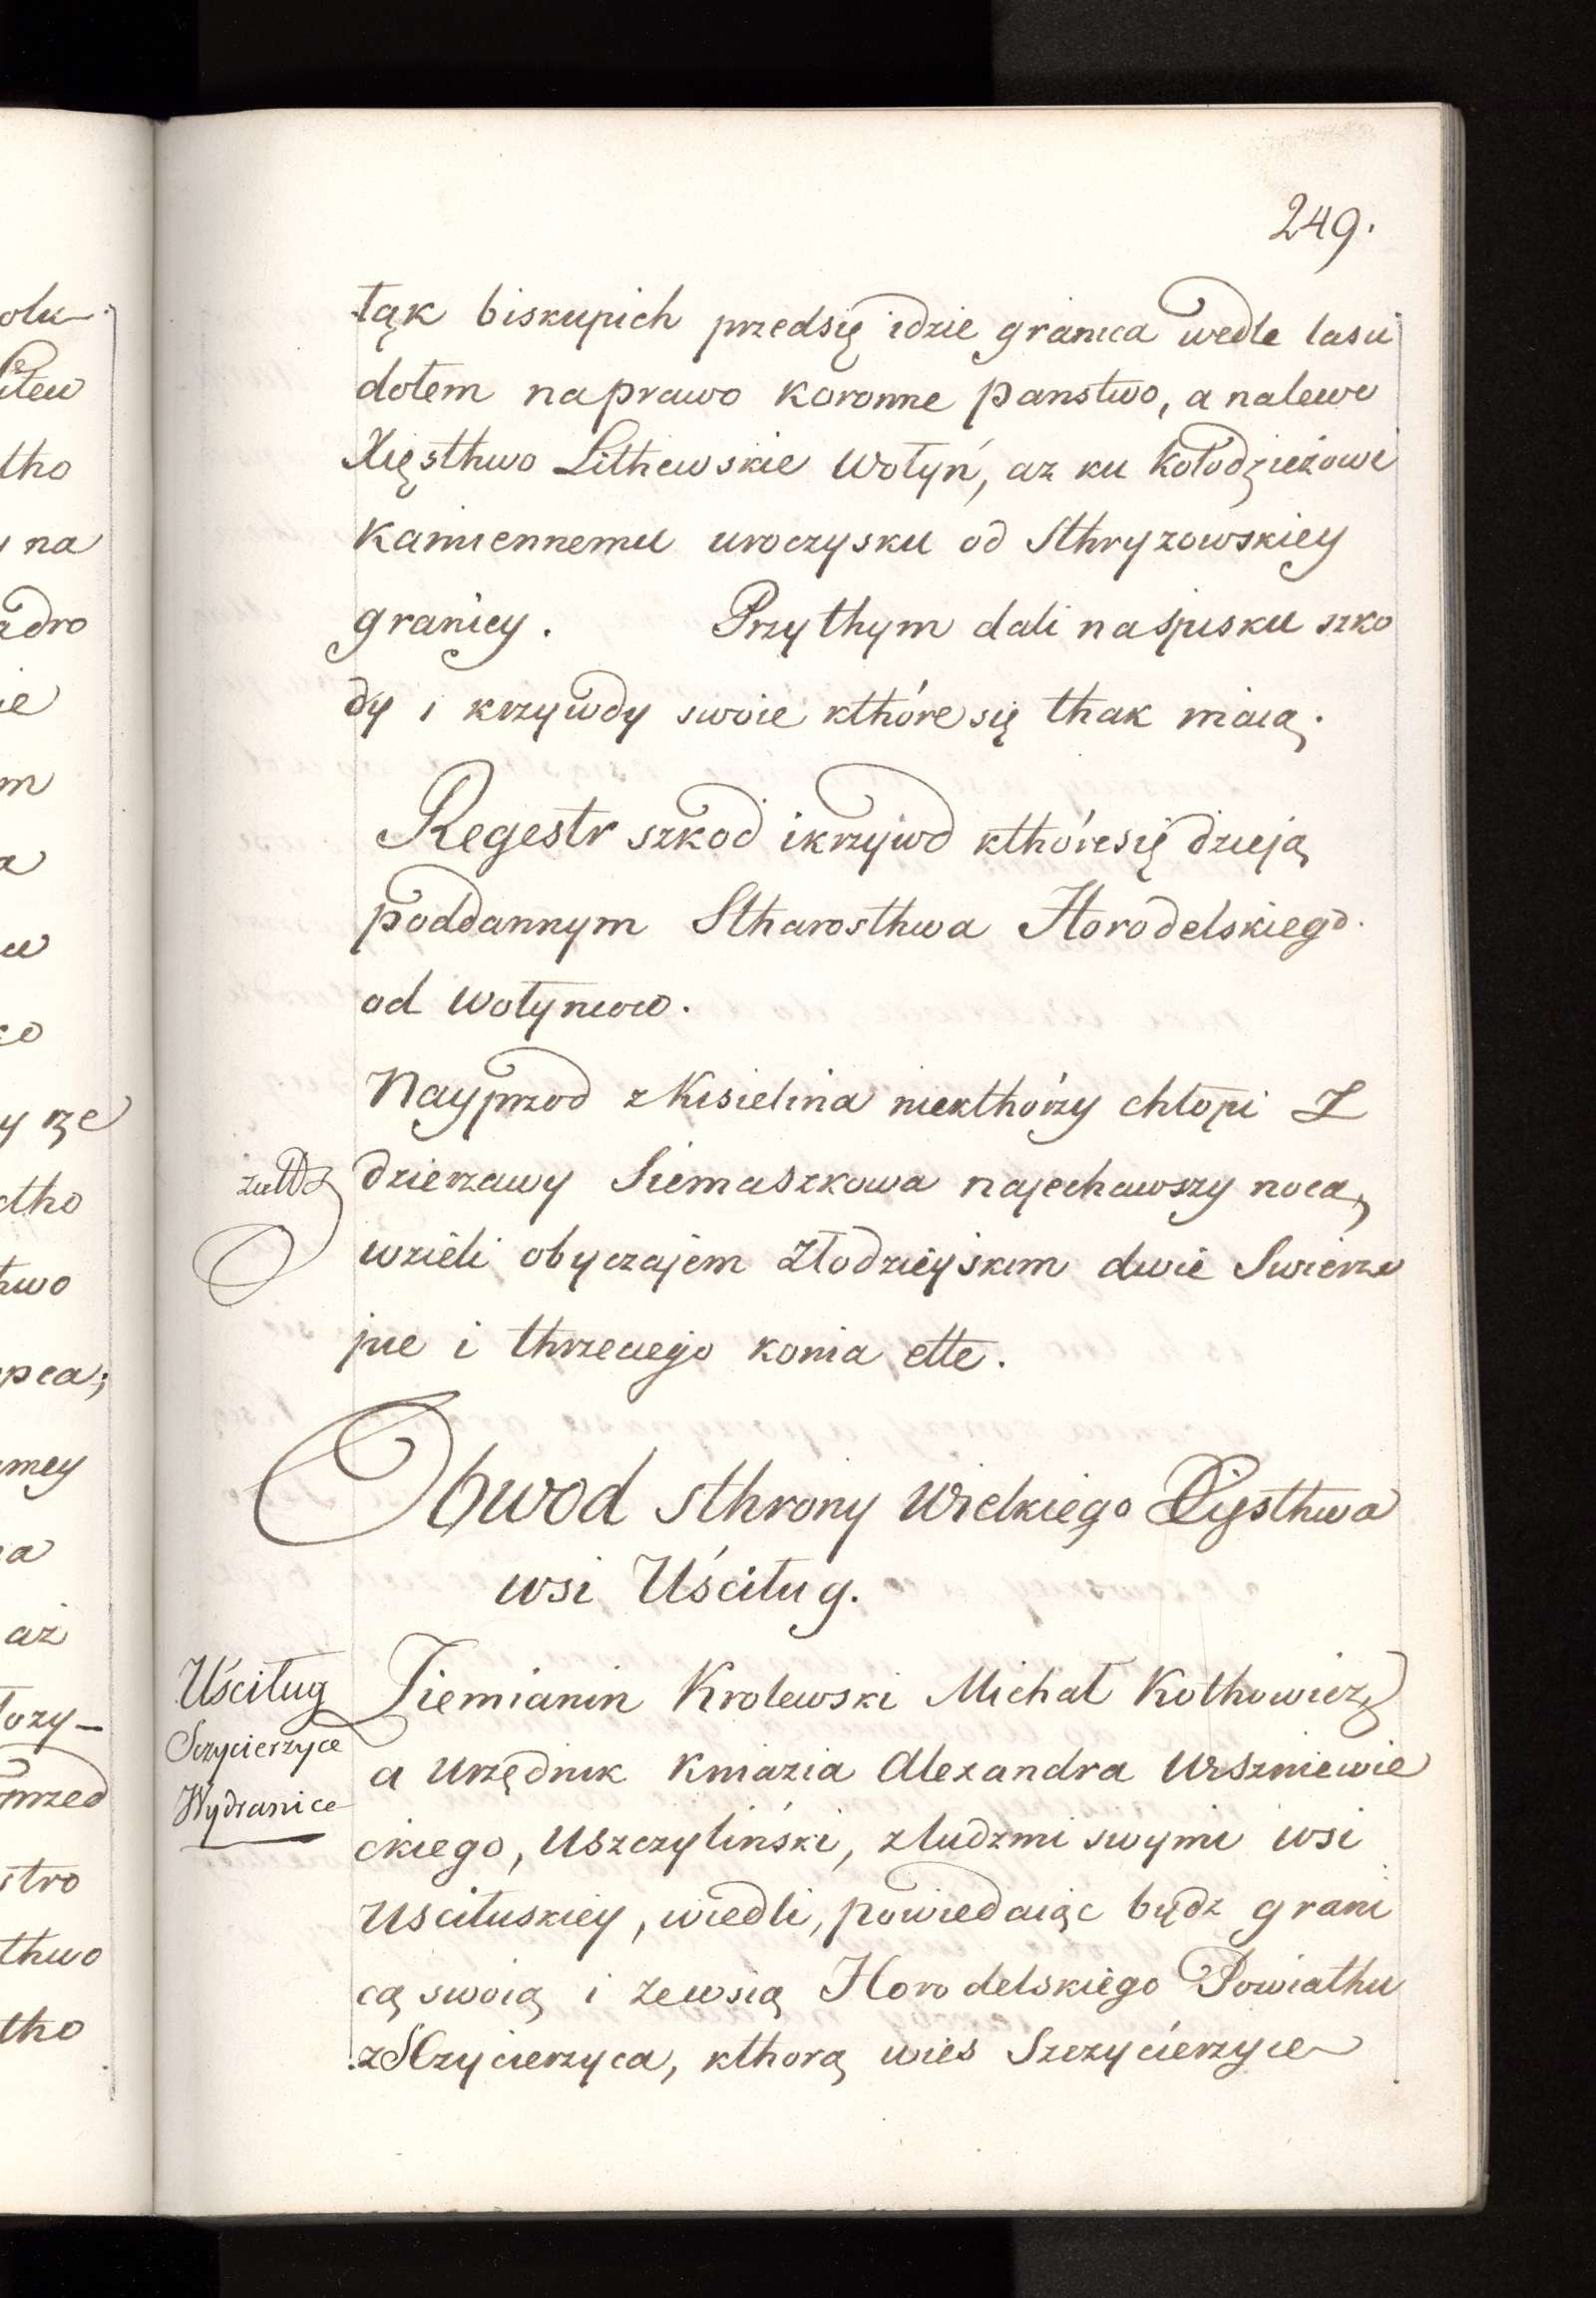 249.
łąk biskupich przedsię idzie granica wedle lasu
dołem naprawo koronne panstwo, a nalewo
Xięsthwo Lithewskie Wołyń, az ku Kołodzieżowi
kamiennemu uroczysku od Sthryzowskiey
granicy. Przythym dali naspisku szko
dy i krzywdy swoie kthóre się thak maią.
Regestr szkod ikrzywd kthóresię dzieją
poddannym Stharosthwa Horodelskiego
od Wołyncow.
Nayprzod z Kisielina niekthórzy chłopi Z
dzierzawy Siemaszkowa najechawszy nocą
wzieli obyczajem złodzieyskim dwie Swierze
pie i thrzeciego konia ette.
Obwod sthrony Wielkiego Xięsthwa
wsi Uściług.
Uściług
Szczycierzyce
Wydranice
Ziemianin Krolewski Michał Kothowicz
a Urzędnik Kniazia Alexandra Wiszniewie
ckiego, Uszczyliński, zludzmi swymi wsi
Usciłuskiey, wiedli, powiedaiąc bydz grani
cą swoią i zewsią Horodelskiego Powiathu
zSczycierzyca, kthorą wies Szczycierzyce